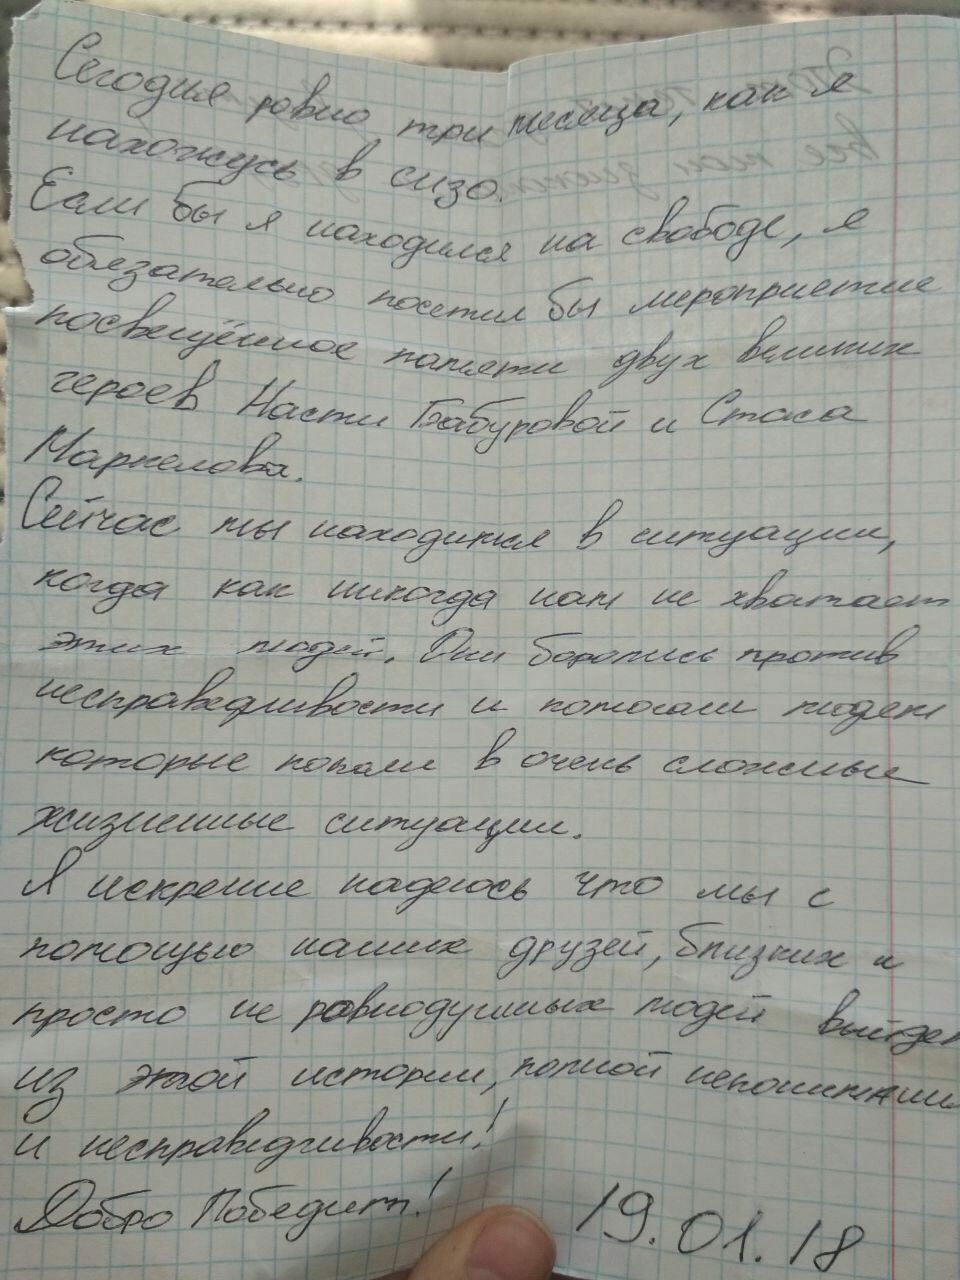 Сегодня ровно три месяца, как я
нахожусь в сизо.
Если бы я находился на свободе, я
обязательно посетил бы мероприятие
посвещённое памяти двух великих
героев Насти Бабуровой и Стаса
Маркелова.
Сейчас мы находимся в ситуации,
когда как никогда нам не хватает
этих людей. Они боролись против
несправедливости и помогали людям
которые попали в очень сложные
жизненные ситуации.
Я искренне надеюсь что мы с
помощью наших друзей, близких и
просто не равнодушных людей выйдем
из этой истории, полной непонимания
и несправедливости!
Добро Победит!
19.01.18